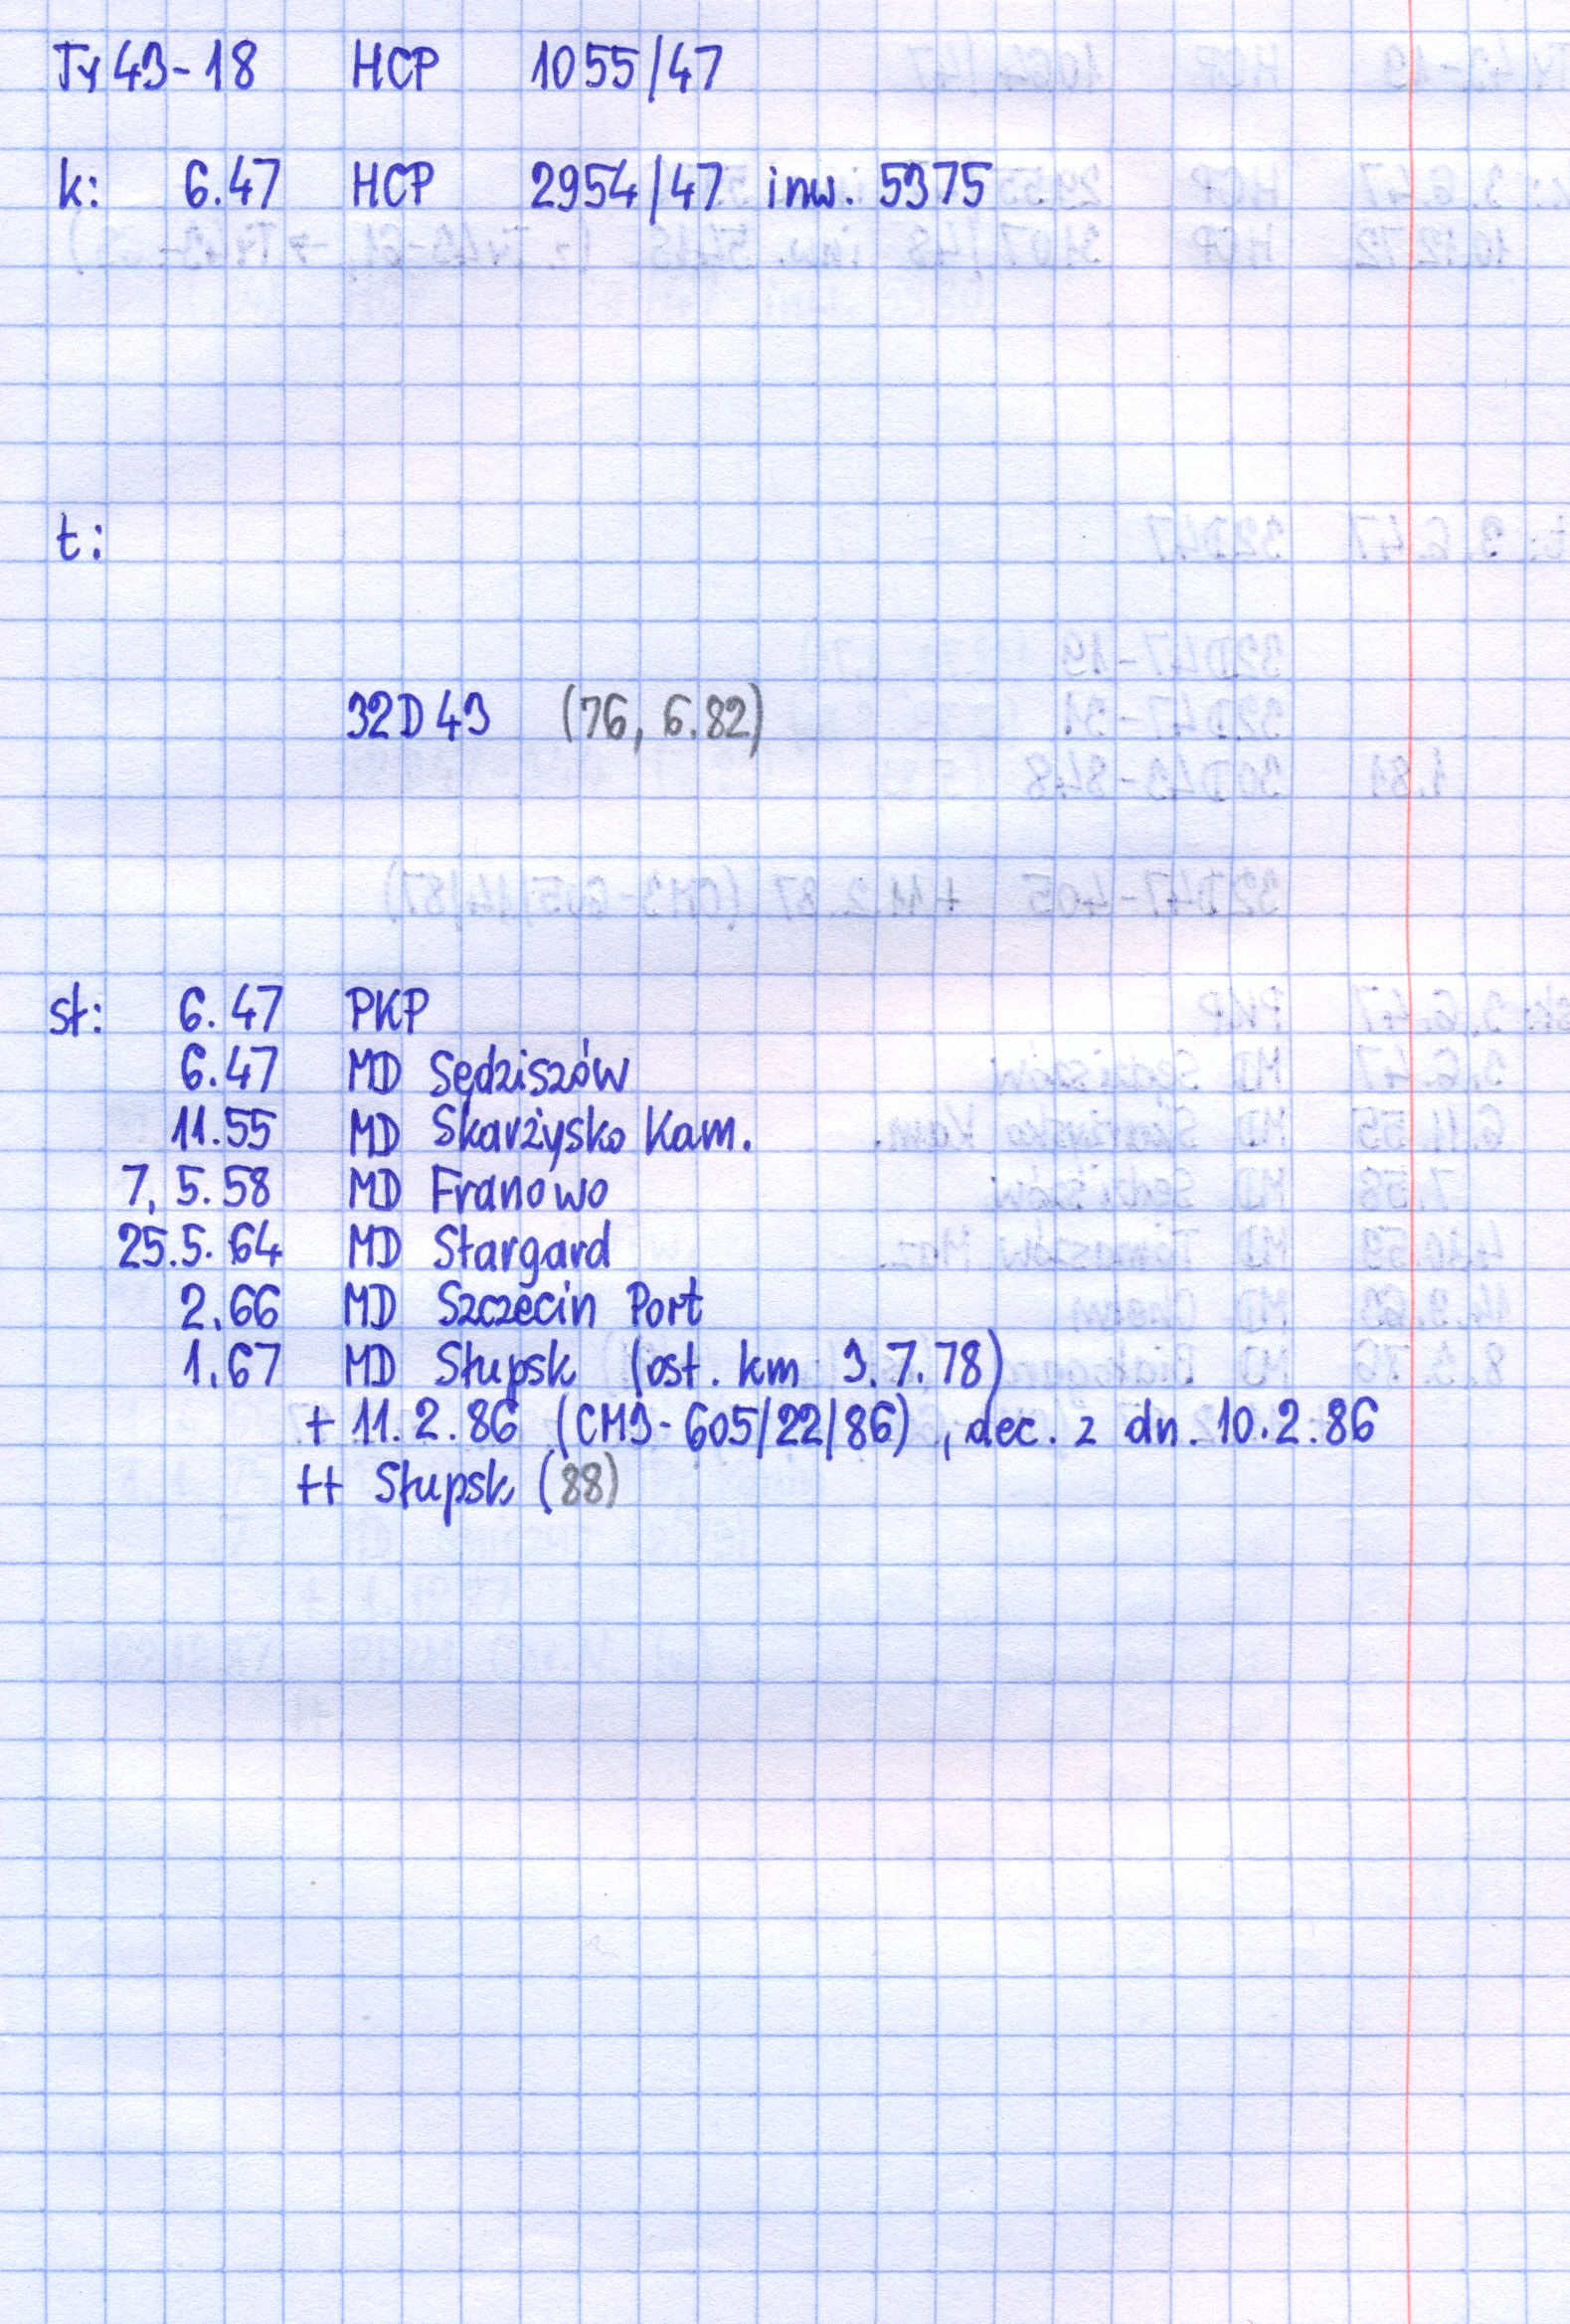 Ty43-18 HCP 1055/47
k: 6.47 HCP 2954/47 inw. 5375
t:
32D43 (76, 6.82)
sł: 6.47 PKP
6.47 MD Sędziszów
11.55 MD Skarżysko Kam.
7, 5.58 MD Franowo
25.5.64 MD Stargard
2.66 MD Szczecin Port
1.67 MD Słupsk (ost. km 3.7.78)
+ 11.2.86 (CM3-605/22/86), dec. z dn. 10.2.86
++ Słupsk (88)